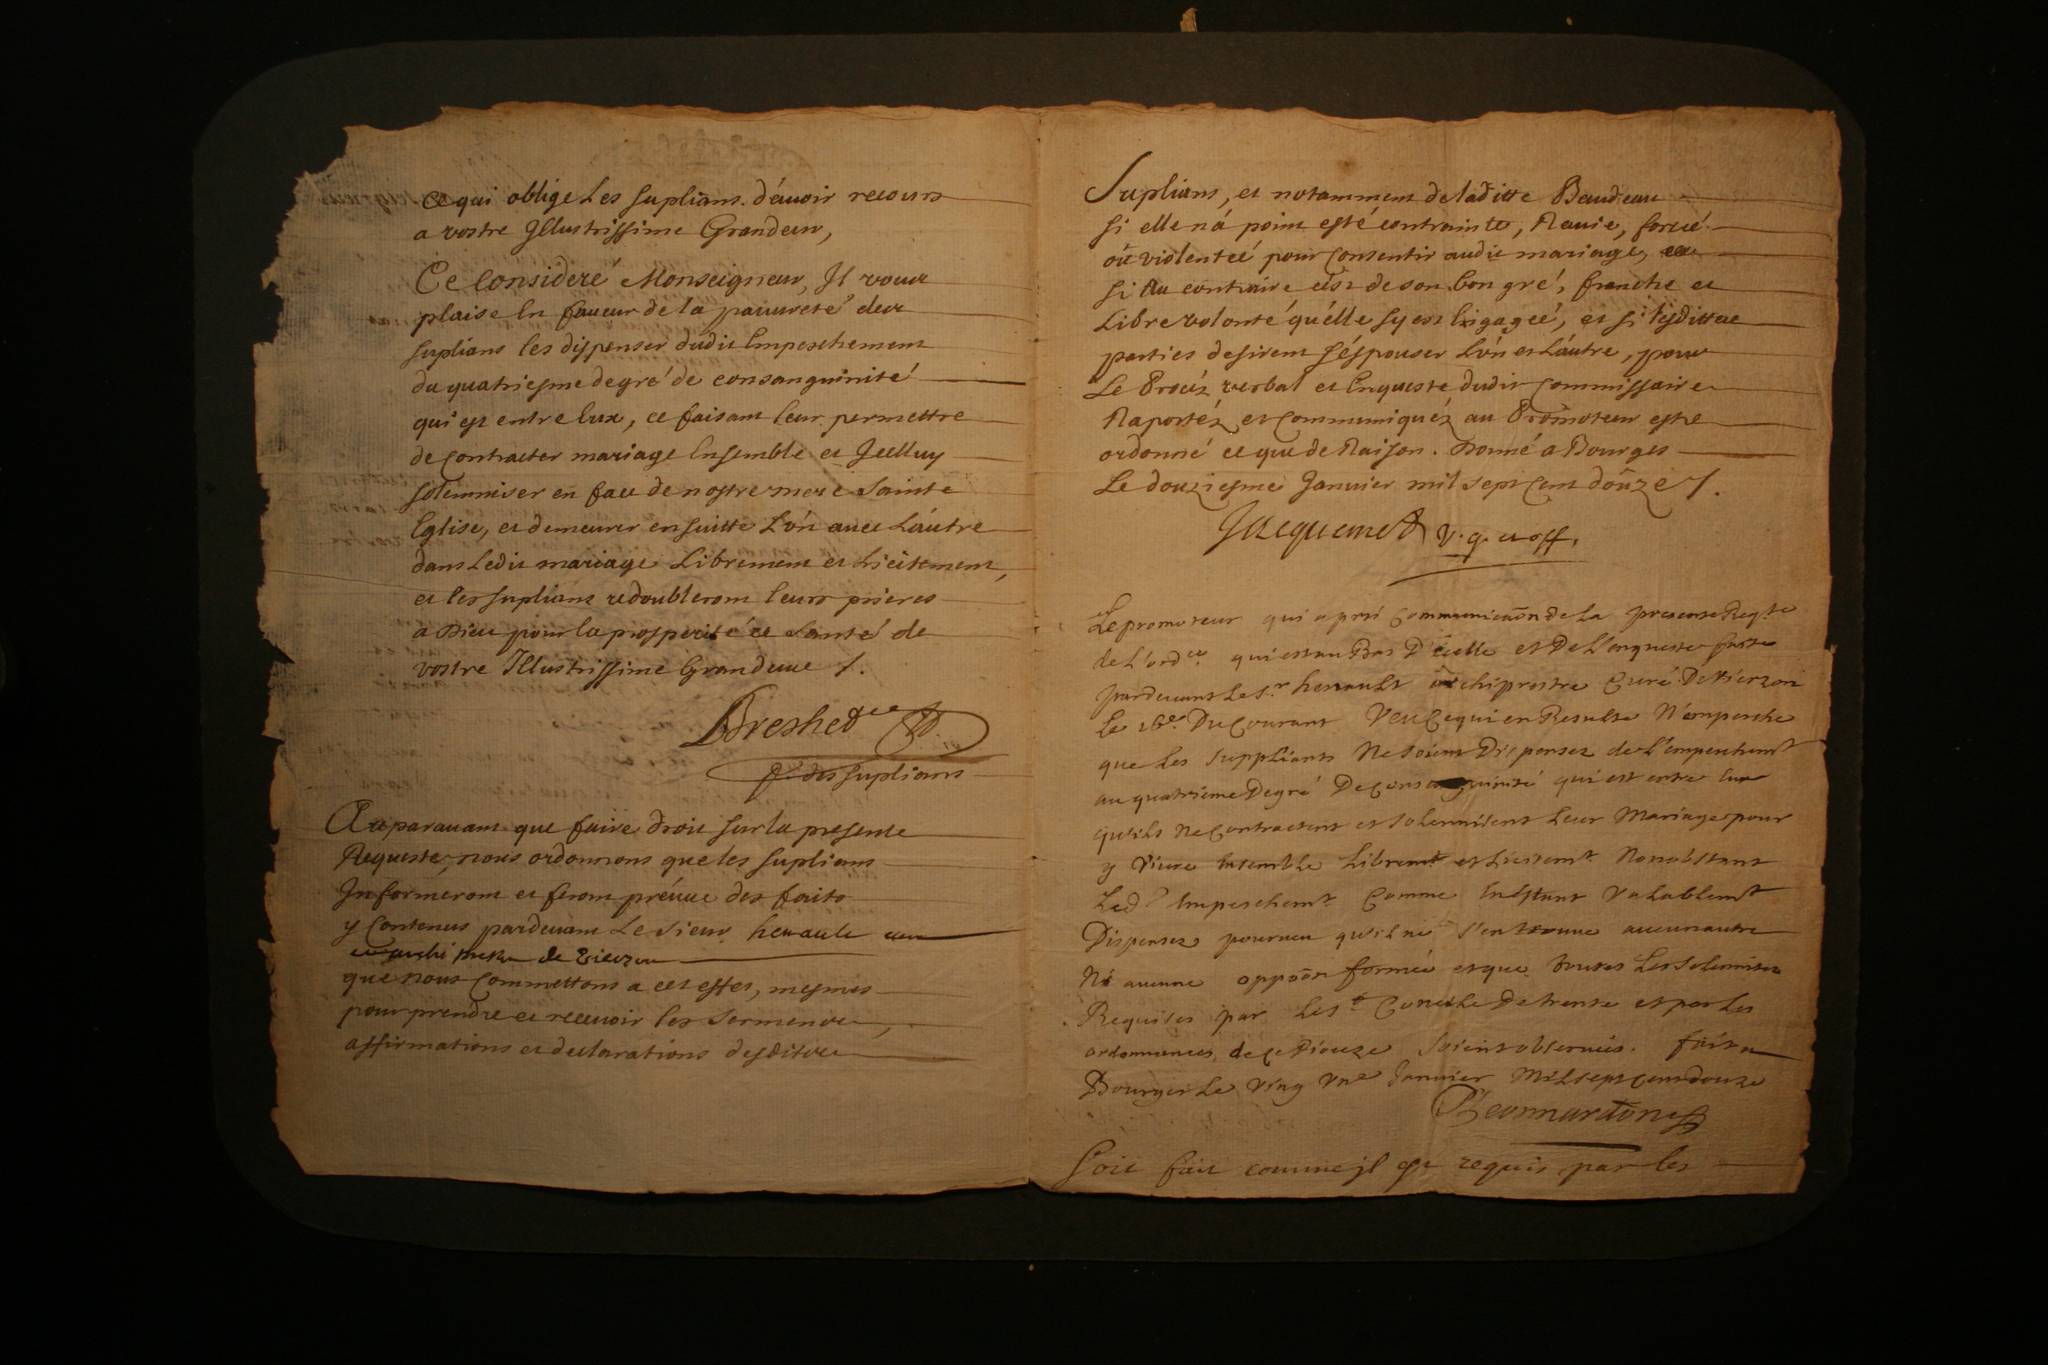 ce qui oblige les suplians d'auoir recours
a vostre Jllustrissime Grandeur,
Ce Consideré Monseigneur, Jl vous
plaise En faueur de la pauureté des
suplians les dispenser dudit Empeschement
du quatriesme degré de consanguinité
qui est entre Eux, ce faisant leur permettre
de Contracter mariage Ensemble et Jcelluy
solemniser en face de nostre mere Sainte
Eglise, et demeurer ensuitte L'ún auec L'áutre
dans Ledit mariage Librement et Licitement,
et les suplians redoubleront leurs prieres
a Dieu pour la prosperité et Santé de
vostre Jllustrissime Grandeur /.
des suplians
Auparauant que faire droit sur la presente
Requeste, nous ordonnons que les suplians
Jnformeront et feront préuue des faits
y Contenus pardeuant Le Sieur henault
de Vierzon
que nous Commettons a cet effet, mesmes
pour prendre et receuoir les Sermens,
affirmations et declarations desdits
Suplians, et notamment de laditte Beaudeau
si elle n'á point esté contrainte, Rauie, forcée
oú violentée pour Consentir audit mariage, ou
si Au contraire c'ést de son bon gré, franche et
Libre volonté qu'élle s'y est Engagée, et si lesdittes
parties desirent s'éspouser L'ún et L'áutre, pour
Le Procéz verbal et Enqueste dudit Commissaire
Raportéz et Communiquéz au Promoteur estre
ordonné ce que de Raison. Donné a Bourges
Le douziesme Januier mil sept Cent douze /.
Jacquemet v. g. et off.
Le promoteur qui a pris Communica͠on de La presente Reqte
de L'ordce qui est au Bas D'icelle et De L'enqueste faite
pardeuant Le Sr henault archiprestre Curé De Vierzon
Le 16e Du Courant Veu Ce qui en Resulte N'empesche
que Les suppliants Ne soient Dispensez de L'empeschemt
au quatrieme Degré De Consanguinité qui est entre Eux
qu'ils Ne Contractent et solemnisent Leur Mariage pour
y Viure Ensemble Libremt et Licitemt Nonobstant
Led. Empeschemt Comme Estant Valablemt
Dispensez pourueu qu'il ne s'en trouue aucun autre
Ni aucune oppo͠on formée et que toutes Les solemnitez
Requises par Le St Concile De trente et par Les
ordonnances de Ce Dioceze soient obseruées. fait a
Bourges Le Ving Vne Januier Mil sept Cent douze
Soit fait comme jl est requis par les